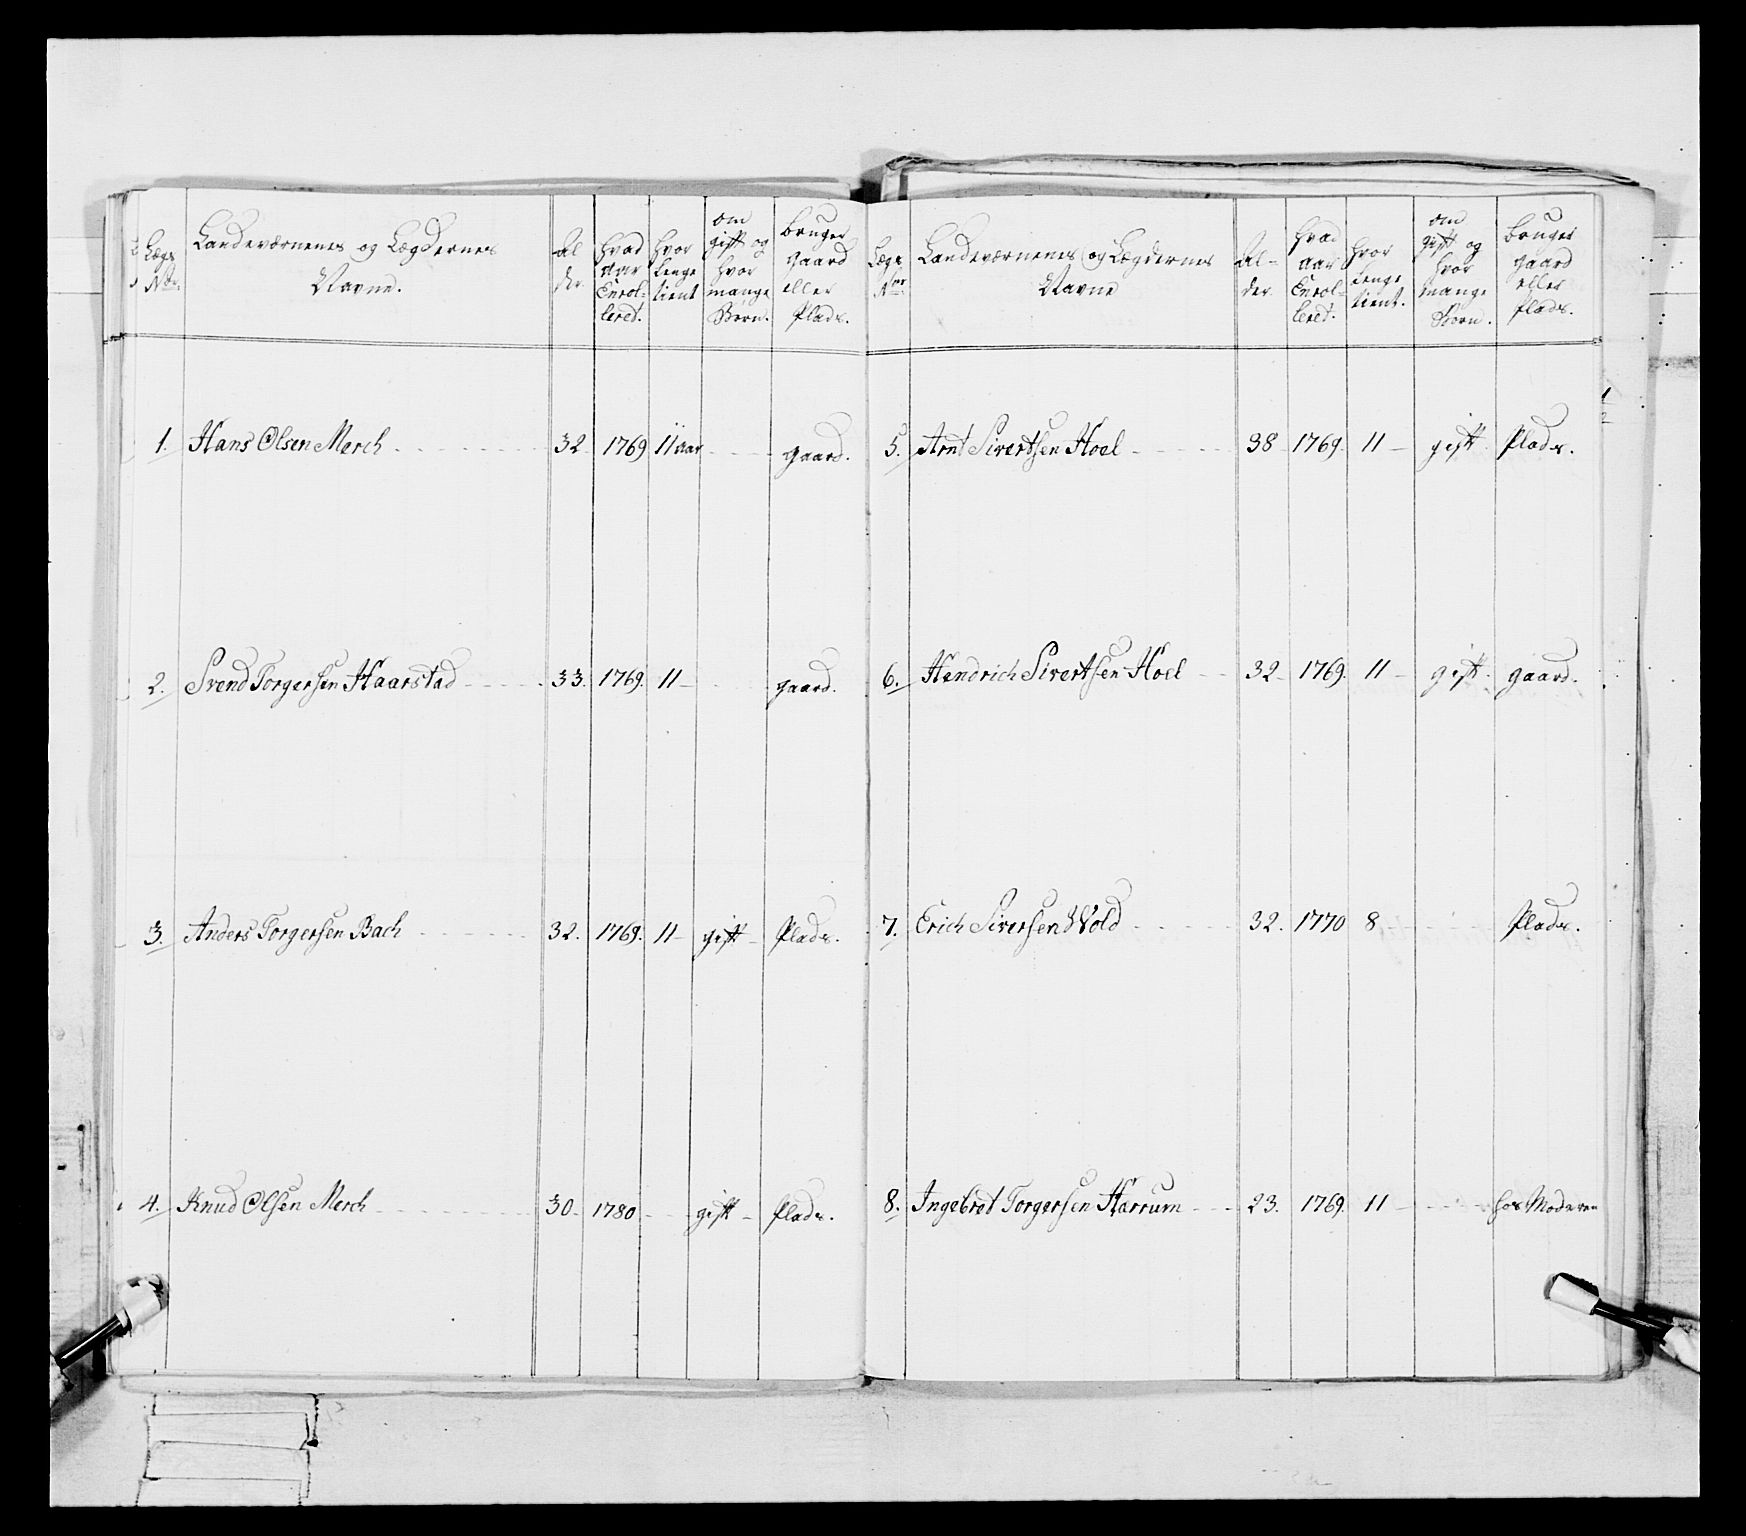 Lægs Nor.
Landeværnenes og Lægdernes Navne.
Al der.
hvad aar Enrol- leret.
hvor lenge tient
om gift og hvor mange Børn.
bruger gaard eller Plads.
1. Hans Olsen Merch 32 1769 11 aar gaard.
2. Svend Torgersen Haarstad 33. 1769. 11 gaard.
3. Anders Torgersen Bach 32. 1769. 11 gift Plads.
4. Knud Olsen Merch 30 1780 gift Plads.
Lægs Nor.
Landeværnenes og Lægdernes Navne
Al- der.
hvad aar Enrol- leret.
hvor lenge tient.
om gift og hvor mange Børn.
bruger gaard eller Plads.
5. Arnt Sivertsen Hoel 38 1769. 11 gift Plads.
6. Hendrich Sivertsen Hoel 32 1769. 11 gift gaard.
7. Erich Siversen Wold 32. 1770 8 Plads.
8. Ingebret Torgersen Harrum 23. 1769. 11 hos Moderen